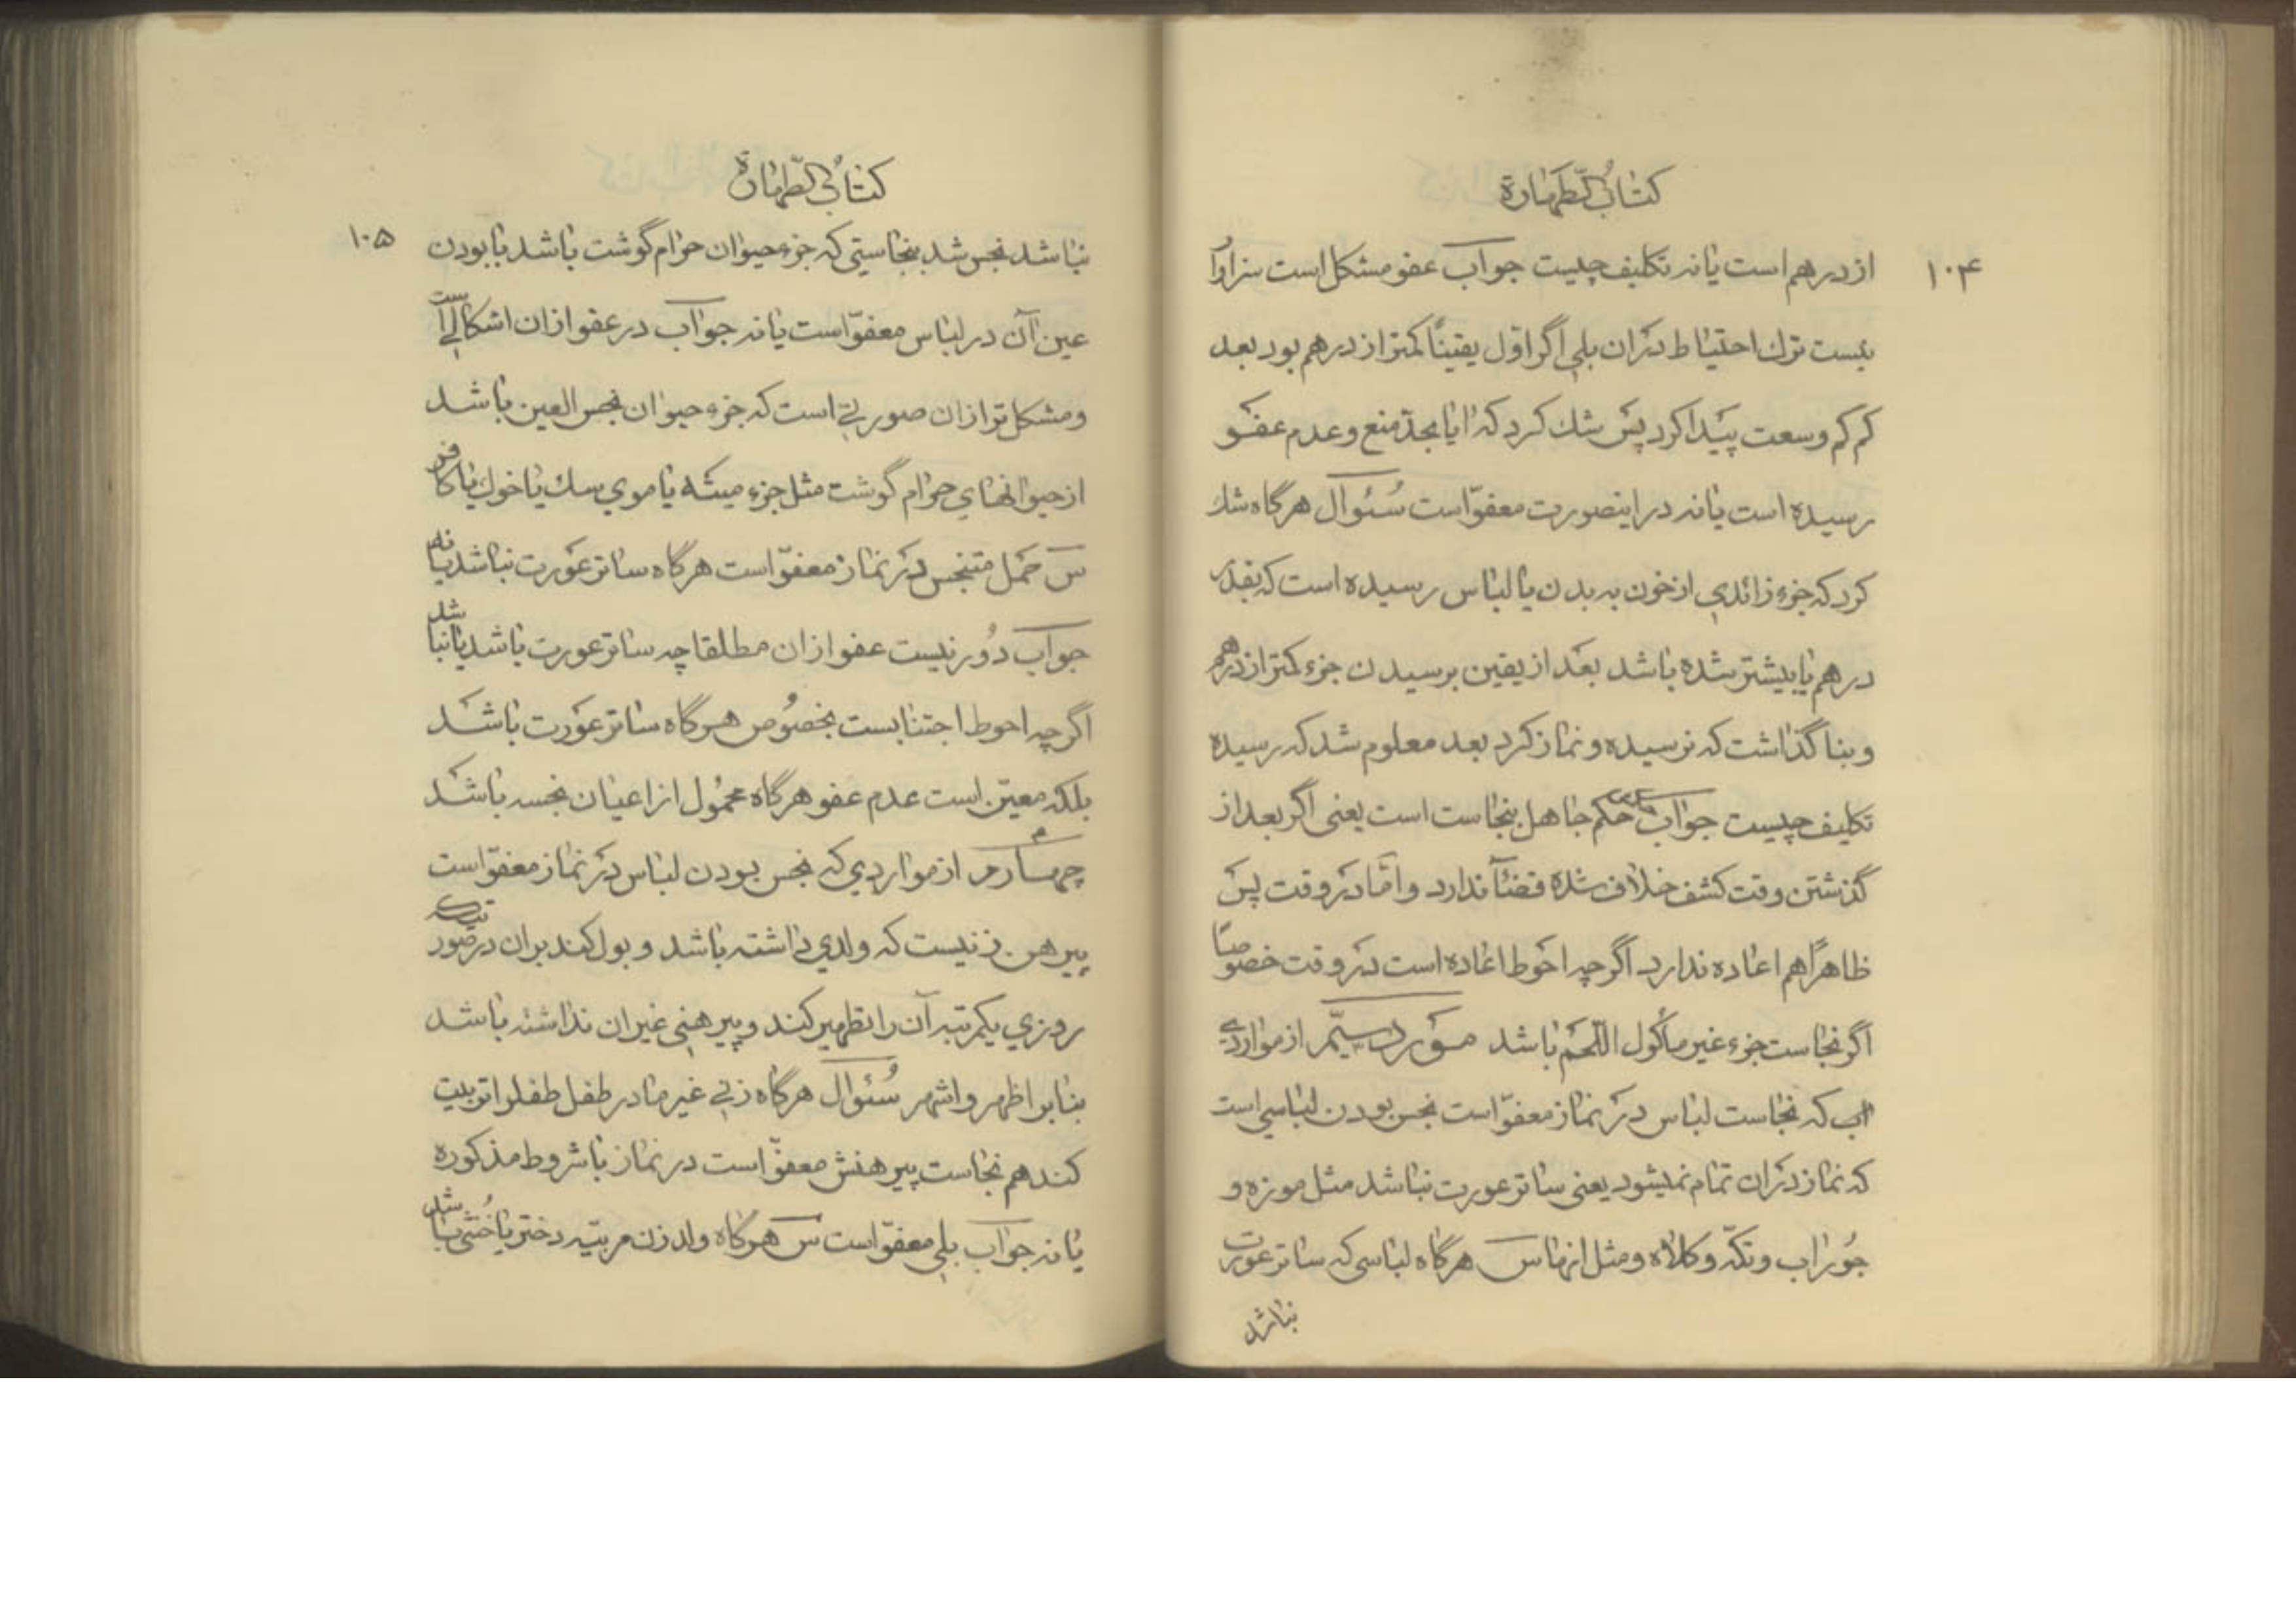 کتاب الطّهارة
۱۰۴
از درهم است یا نه تکلیف چیست جواب عفو مشکل است سزاوار
نیست ترک احتیاط در آن بلی اگر اوّل یقیناً کمتر از درهم بود بعد
کم کم وسعت پیدا کرد پس شک کرد که آیا بحدّ منع و عدم عفو
رسیده است یا نه در اینصورت معفوّ است سُئوال هرگاه شک
کرد که جزء زائدی از خون به بدن یا لباس رسیده است که بقدر
درهم یا بیشتر شده باشد بعد از یقین برسیدن جزء کمتر از درهم
و بنا گذاشت که نرسیده و نماز کرد بعد معلوم شد که رسیده
تکلیف چیست جواب حکم جاهل بنجاست است یعنی اگر بعد از
گذشتن وقت کشف خلاف شده قضآء ندارد و امّا در وقت پس
ظاهراً هم اعاده ندارد اگر چه احوط اعاده است در وقت خصوصاً
اگر نجاست جزء غیر مأکول اللّحم باشد مورد سیّم از مواردی
که نجاست لباس در نماز معفوّ است نجس بودن لباسی است
که نماز در آن تمام نمیشود یعنی ساتر عورت نباشد مثل موزه و
جُوراب و تکّه و کلاه و مثل آنها س هرگاه لباسی که ساتر عورت
نباشد
کتاب الطّهارة
۱۰۵
نباشد نجس شد بنجاستی که جزء حیوان حرام گوشت باشد با بودن
عین آن در لباس معفوّ است یا نه جواب در عفو از ان اشکالی است
و مشکل تر از ان صورتی است که جزء حیوان نجس العین باشد
از حیوانهای حرام گوشت مثل جزء میته یا موی سک یا خوک یا کافر
س حمل متنجس در نماز معفوّ است هرگاه ساتر عورت نباشد یا نه
جواب دُور نیست عفو از ان مطلقا چه ساتر عورت باشد یا نباشد
اگر چه احوط اجتنابست بخصُوص هرگاه ساتر عورت باشد
بلکه معین است عدم عفو هرگاه محمُول از اعیان نجسه باشد
چهارم از مواردی که نجس بودن لباس در نماز معفوّ است
پیرهن زنیست که ولدی داشته باشد و بول کند بران در صورتیکه
روزی یکمرتبه آن را تطهیر کند و پیرهنی غیر ان نداشته باشد
بنابر اظهر و اشهر سُئوال هرگاه زنی غیر مادر طفل طفلرا تربیت
کند هم نجاست پیرهنش معفوّ است در نماز با شروط مذکوره
یا نه جواب بلی معفوّ است س هرگاه ولد زن مربّیه دختر یا خُنثی باشد